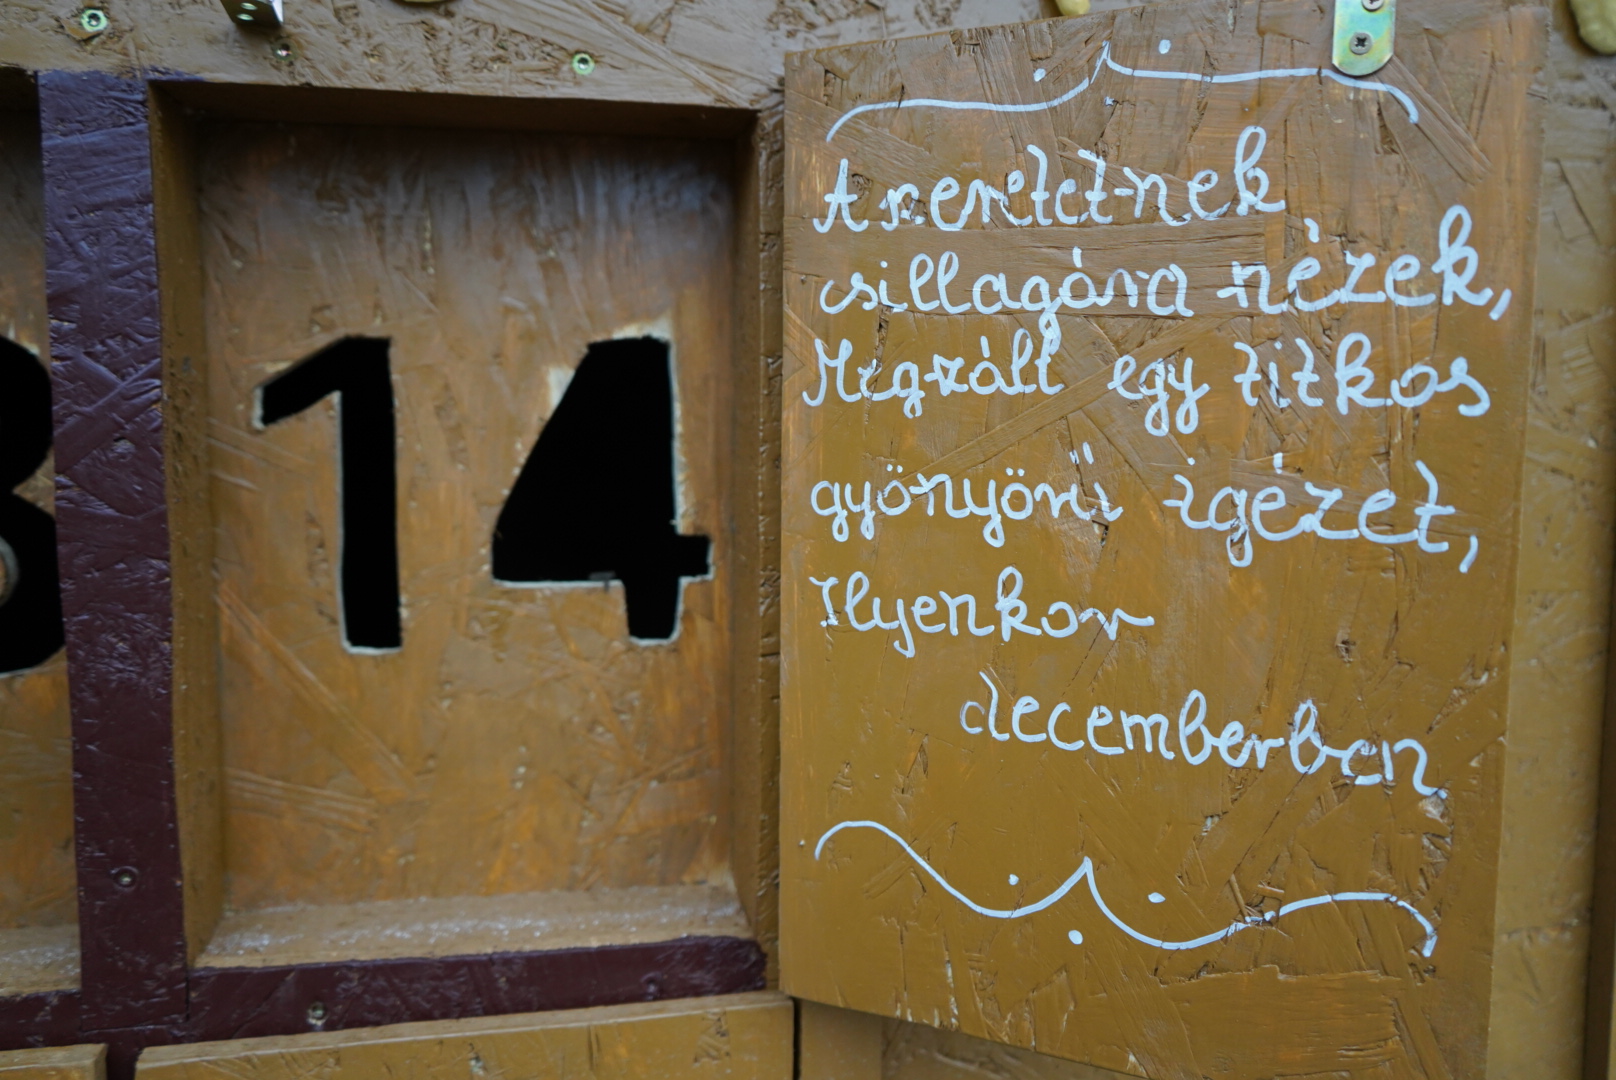 14
A szeretetnek,
csillagára nézek,
Megszáll egy titkos
gyönyörű igézet,
Ilyenkor
decemberben.